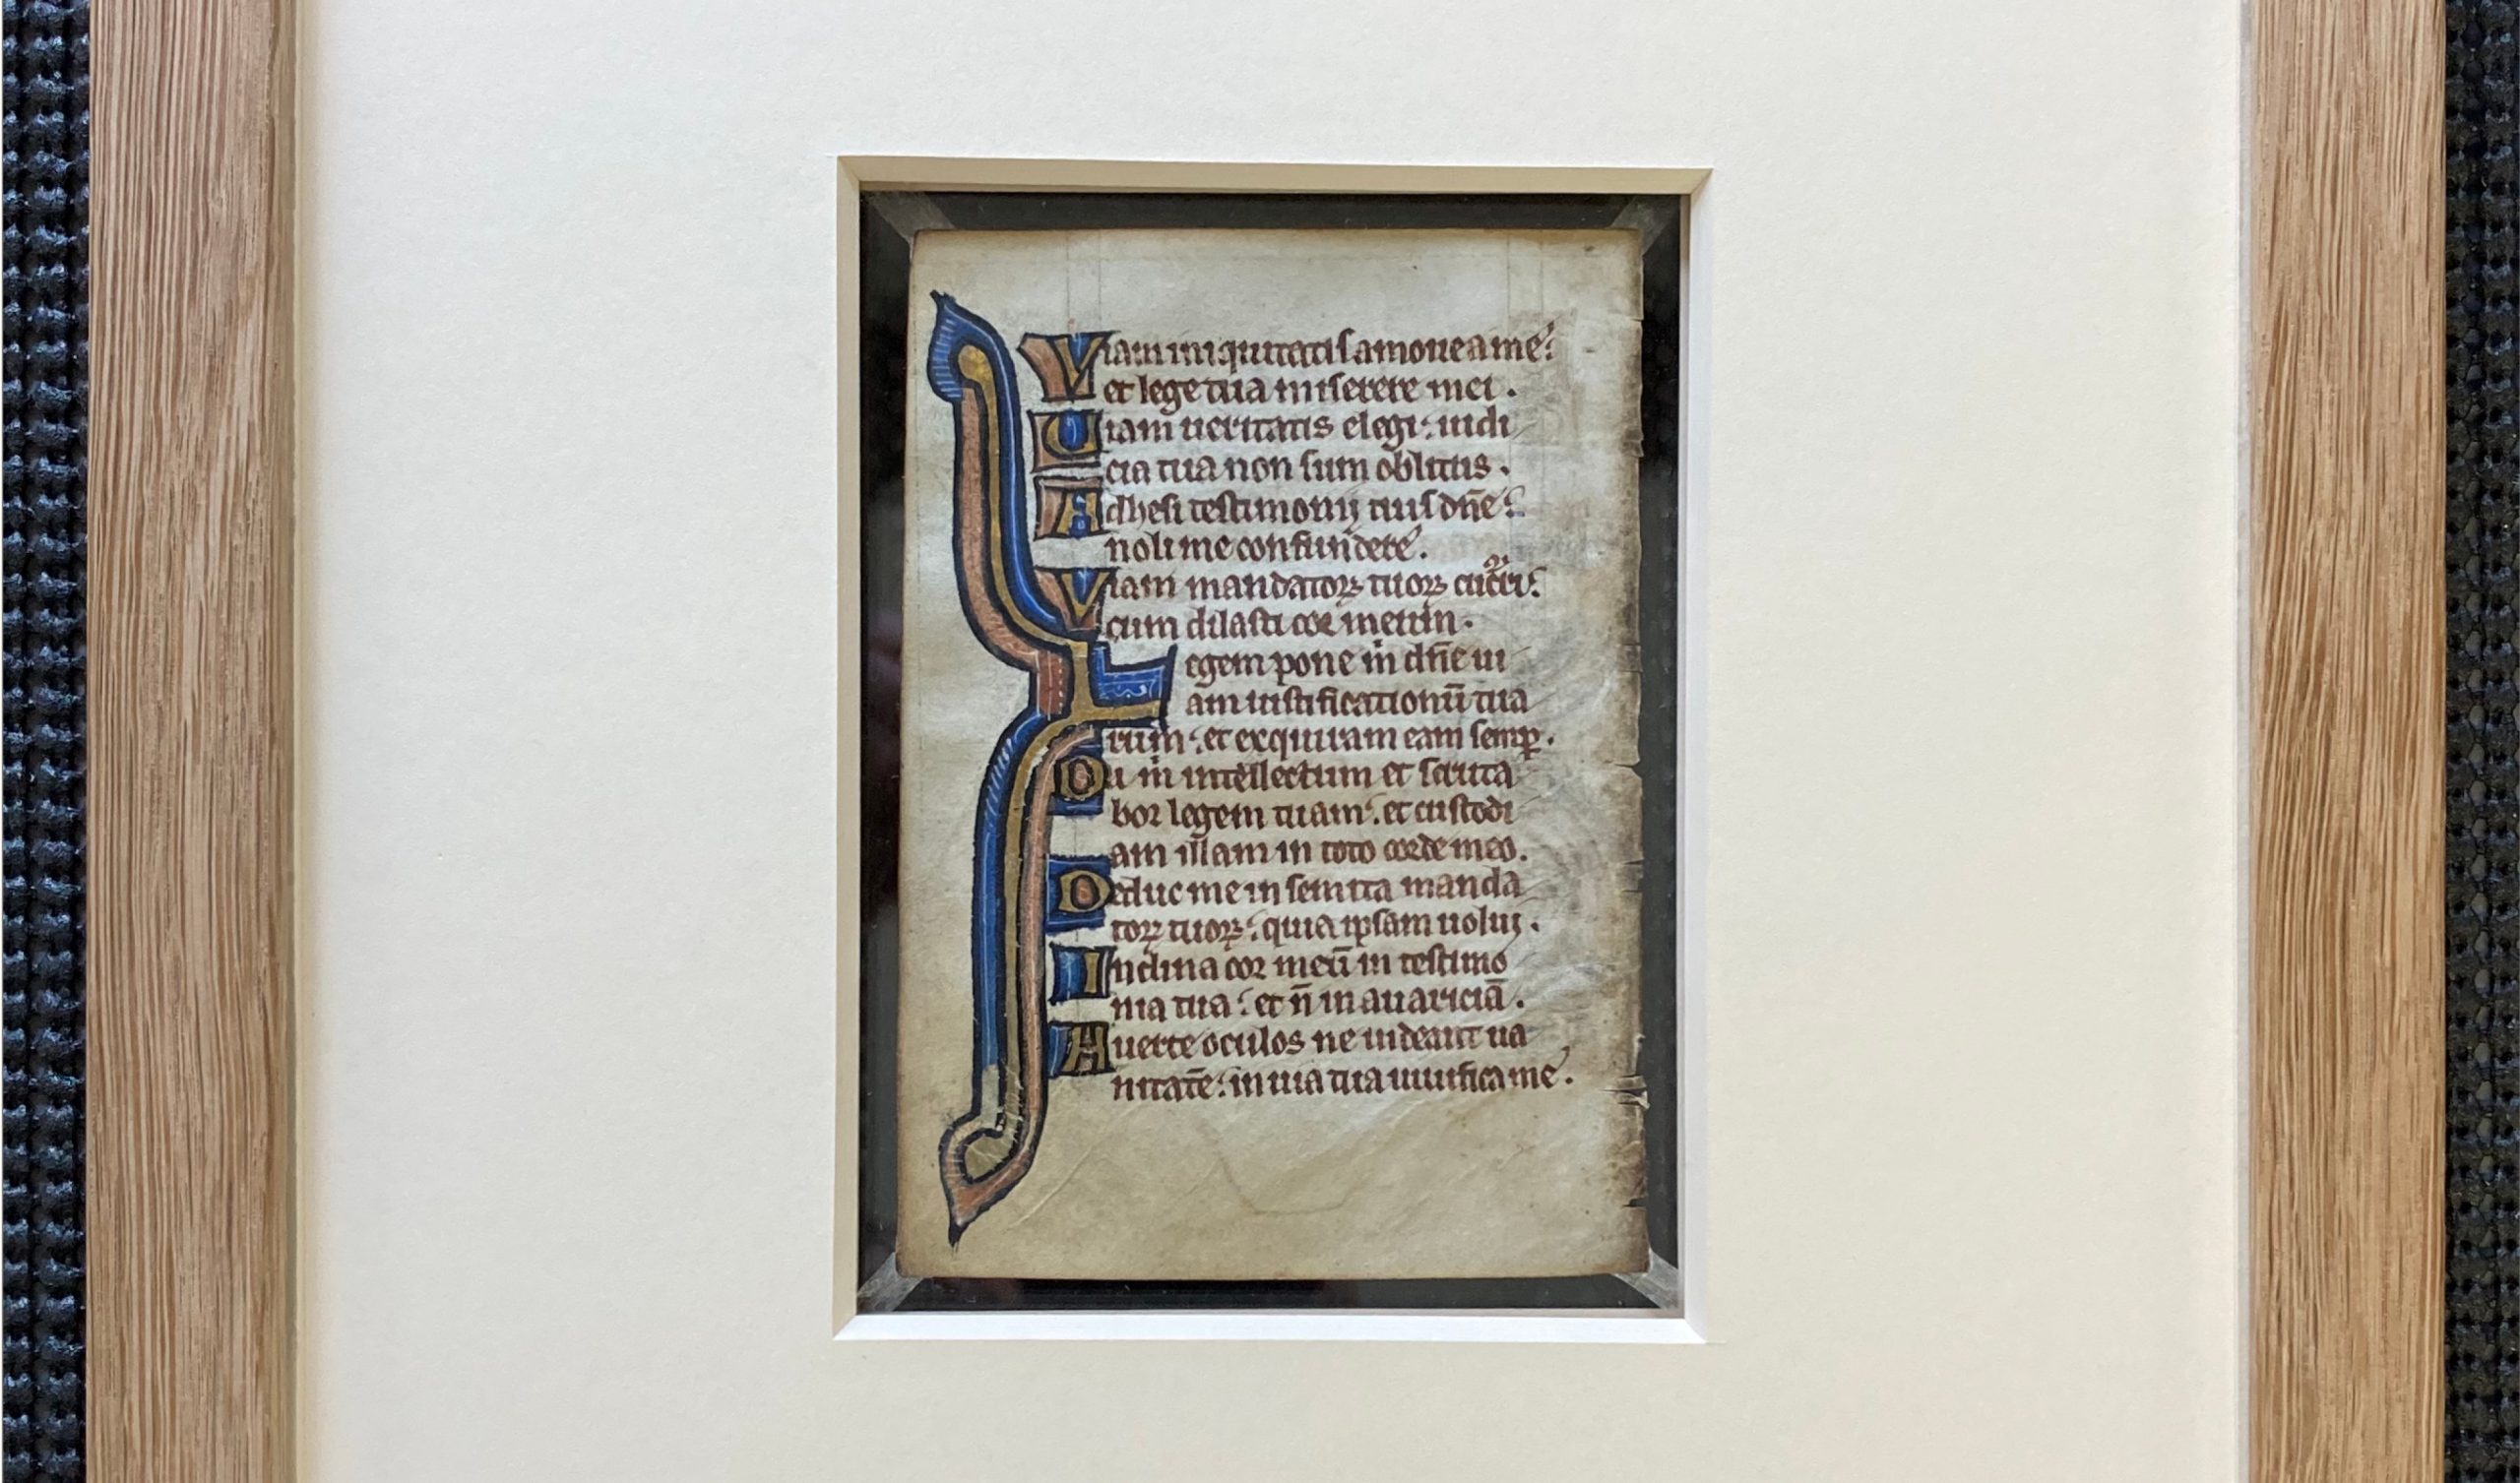 Viam iniquitatis amove a me:
et lege tua miserere mei.
Uiam ueritatis elegi: iudi
cia tua non sum oblitus.
Adhesi testimonijs tuis dn̄e:
noli me confundere.
Viam mandatoꝝ tuoꝝ cucurri:
cum dilasti cor meum.
Legem pone m̄ dn̄e ui
am iustificationū tua
rum: et exquiram eam semꝑ.
Da m̄ intellectum et scruta
bor legem tuam: et custodi
am illam in toto corde meo.
Deduc me in semita manda
toꝝ tuoꝝ: quia ipsam uolui.
Inclina cor meū in testimo
nia tua: et n̄ in auariciā.
Auerte oculos ne uideant ua
nitatē: in uia tua uiuifica me.